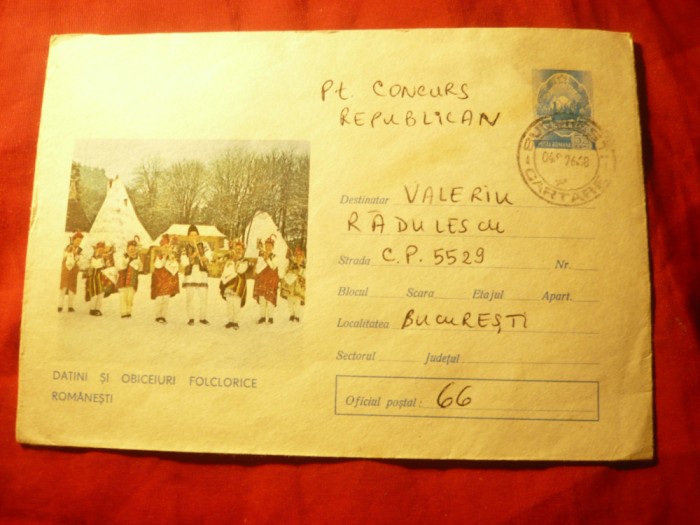 Pt. CONCURS
REPUBLICAN
BUCUREȘTI
CARTARE
Destinatar VALERIU
RĂDULESCU
Strada C.P. 5529 Nr.
Blocul Scara Etajul Apart.
Localitatea BUCUREȘTI
Sectorul Județul
Oficiul poștal: 66
DATINI ȘI OBICEIURI FOLCLORICE
ROMÂNEȘTI